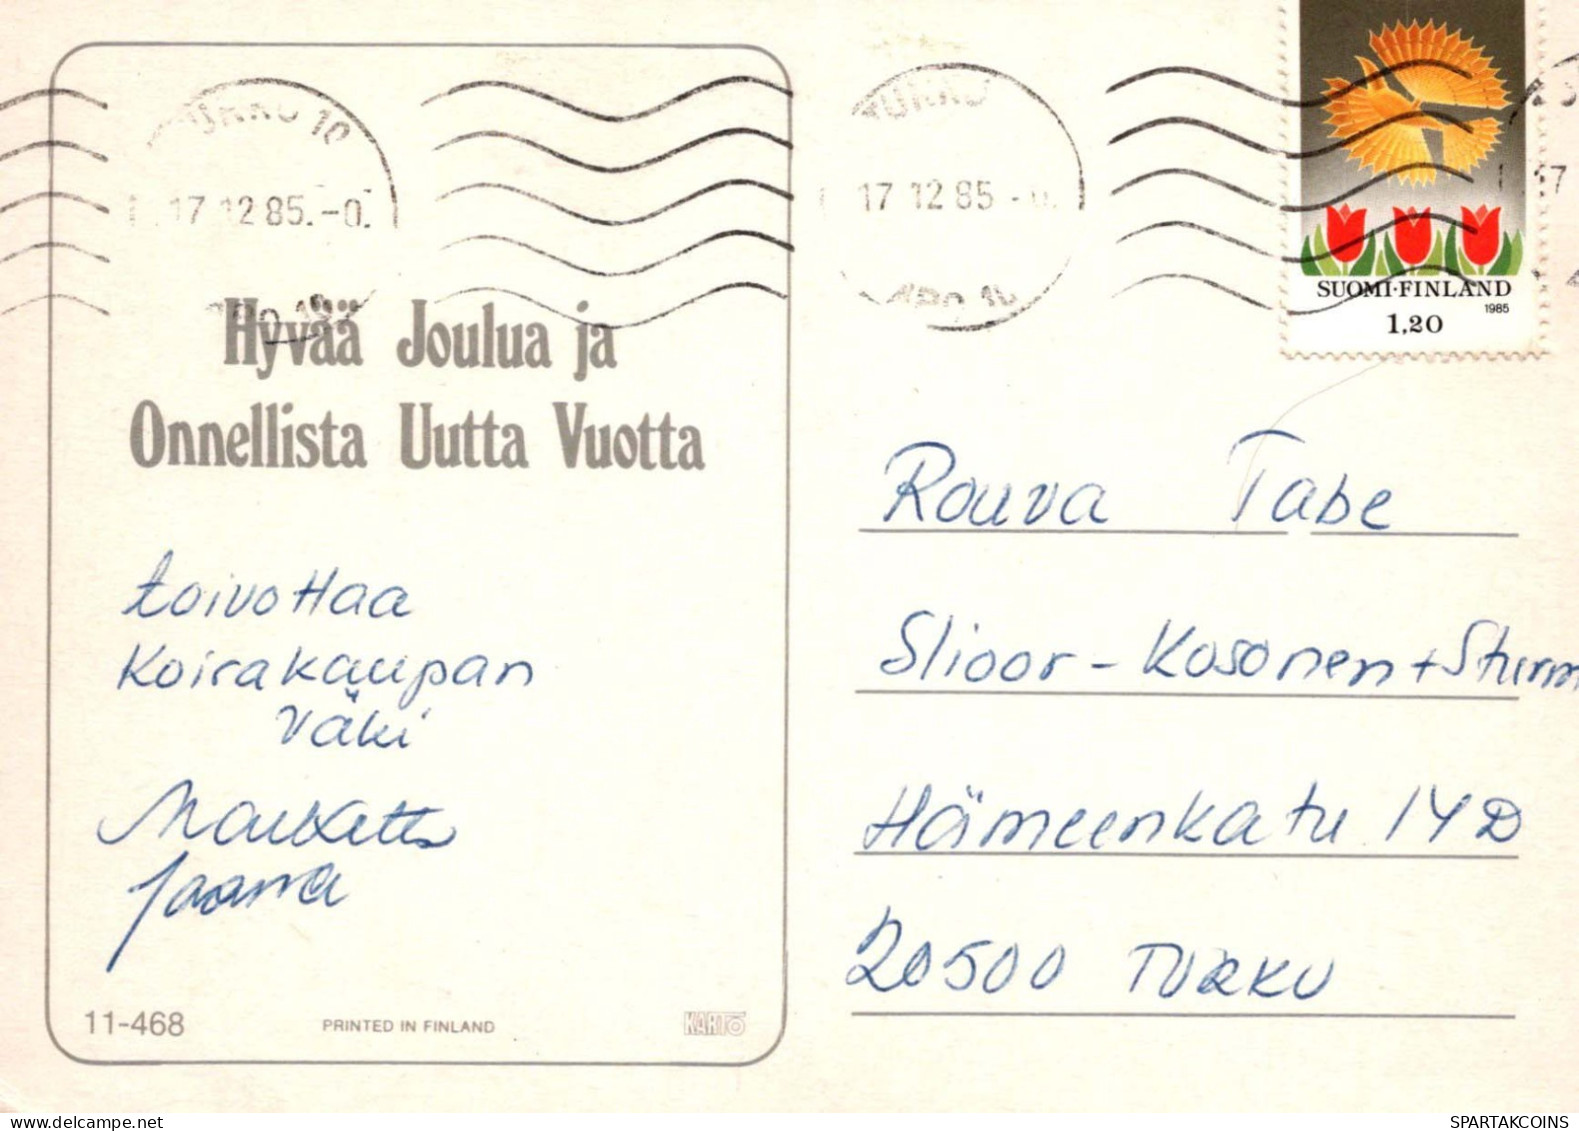 TURKU 10
17 12 85.-0.
TURKU
17 12 85 -0.
17
SUOMI-FINLAND
1985
1,20
Hyvää Joulua ja
Onnellista Uutta Vuotta
toivottaa
Koirakaupan
väki
Marketta
Jaana
11-468
PRINTED IN FINLAND
KARTO
Rouva Tabe
Slioor-Kosonen+Sturm
Hämeenkatu 14 D
20500 TURKU
delcampe.net
SPARTAKCOINS